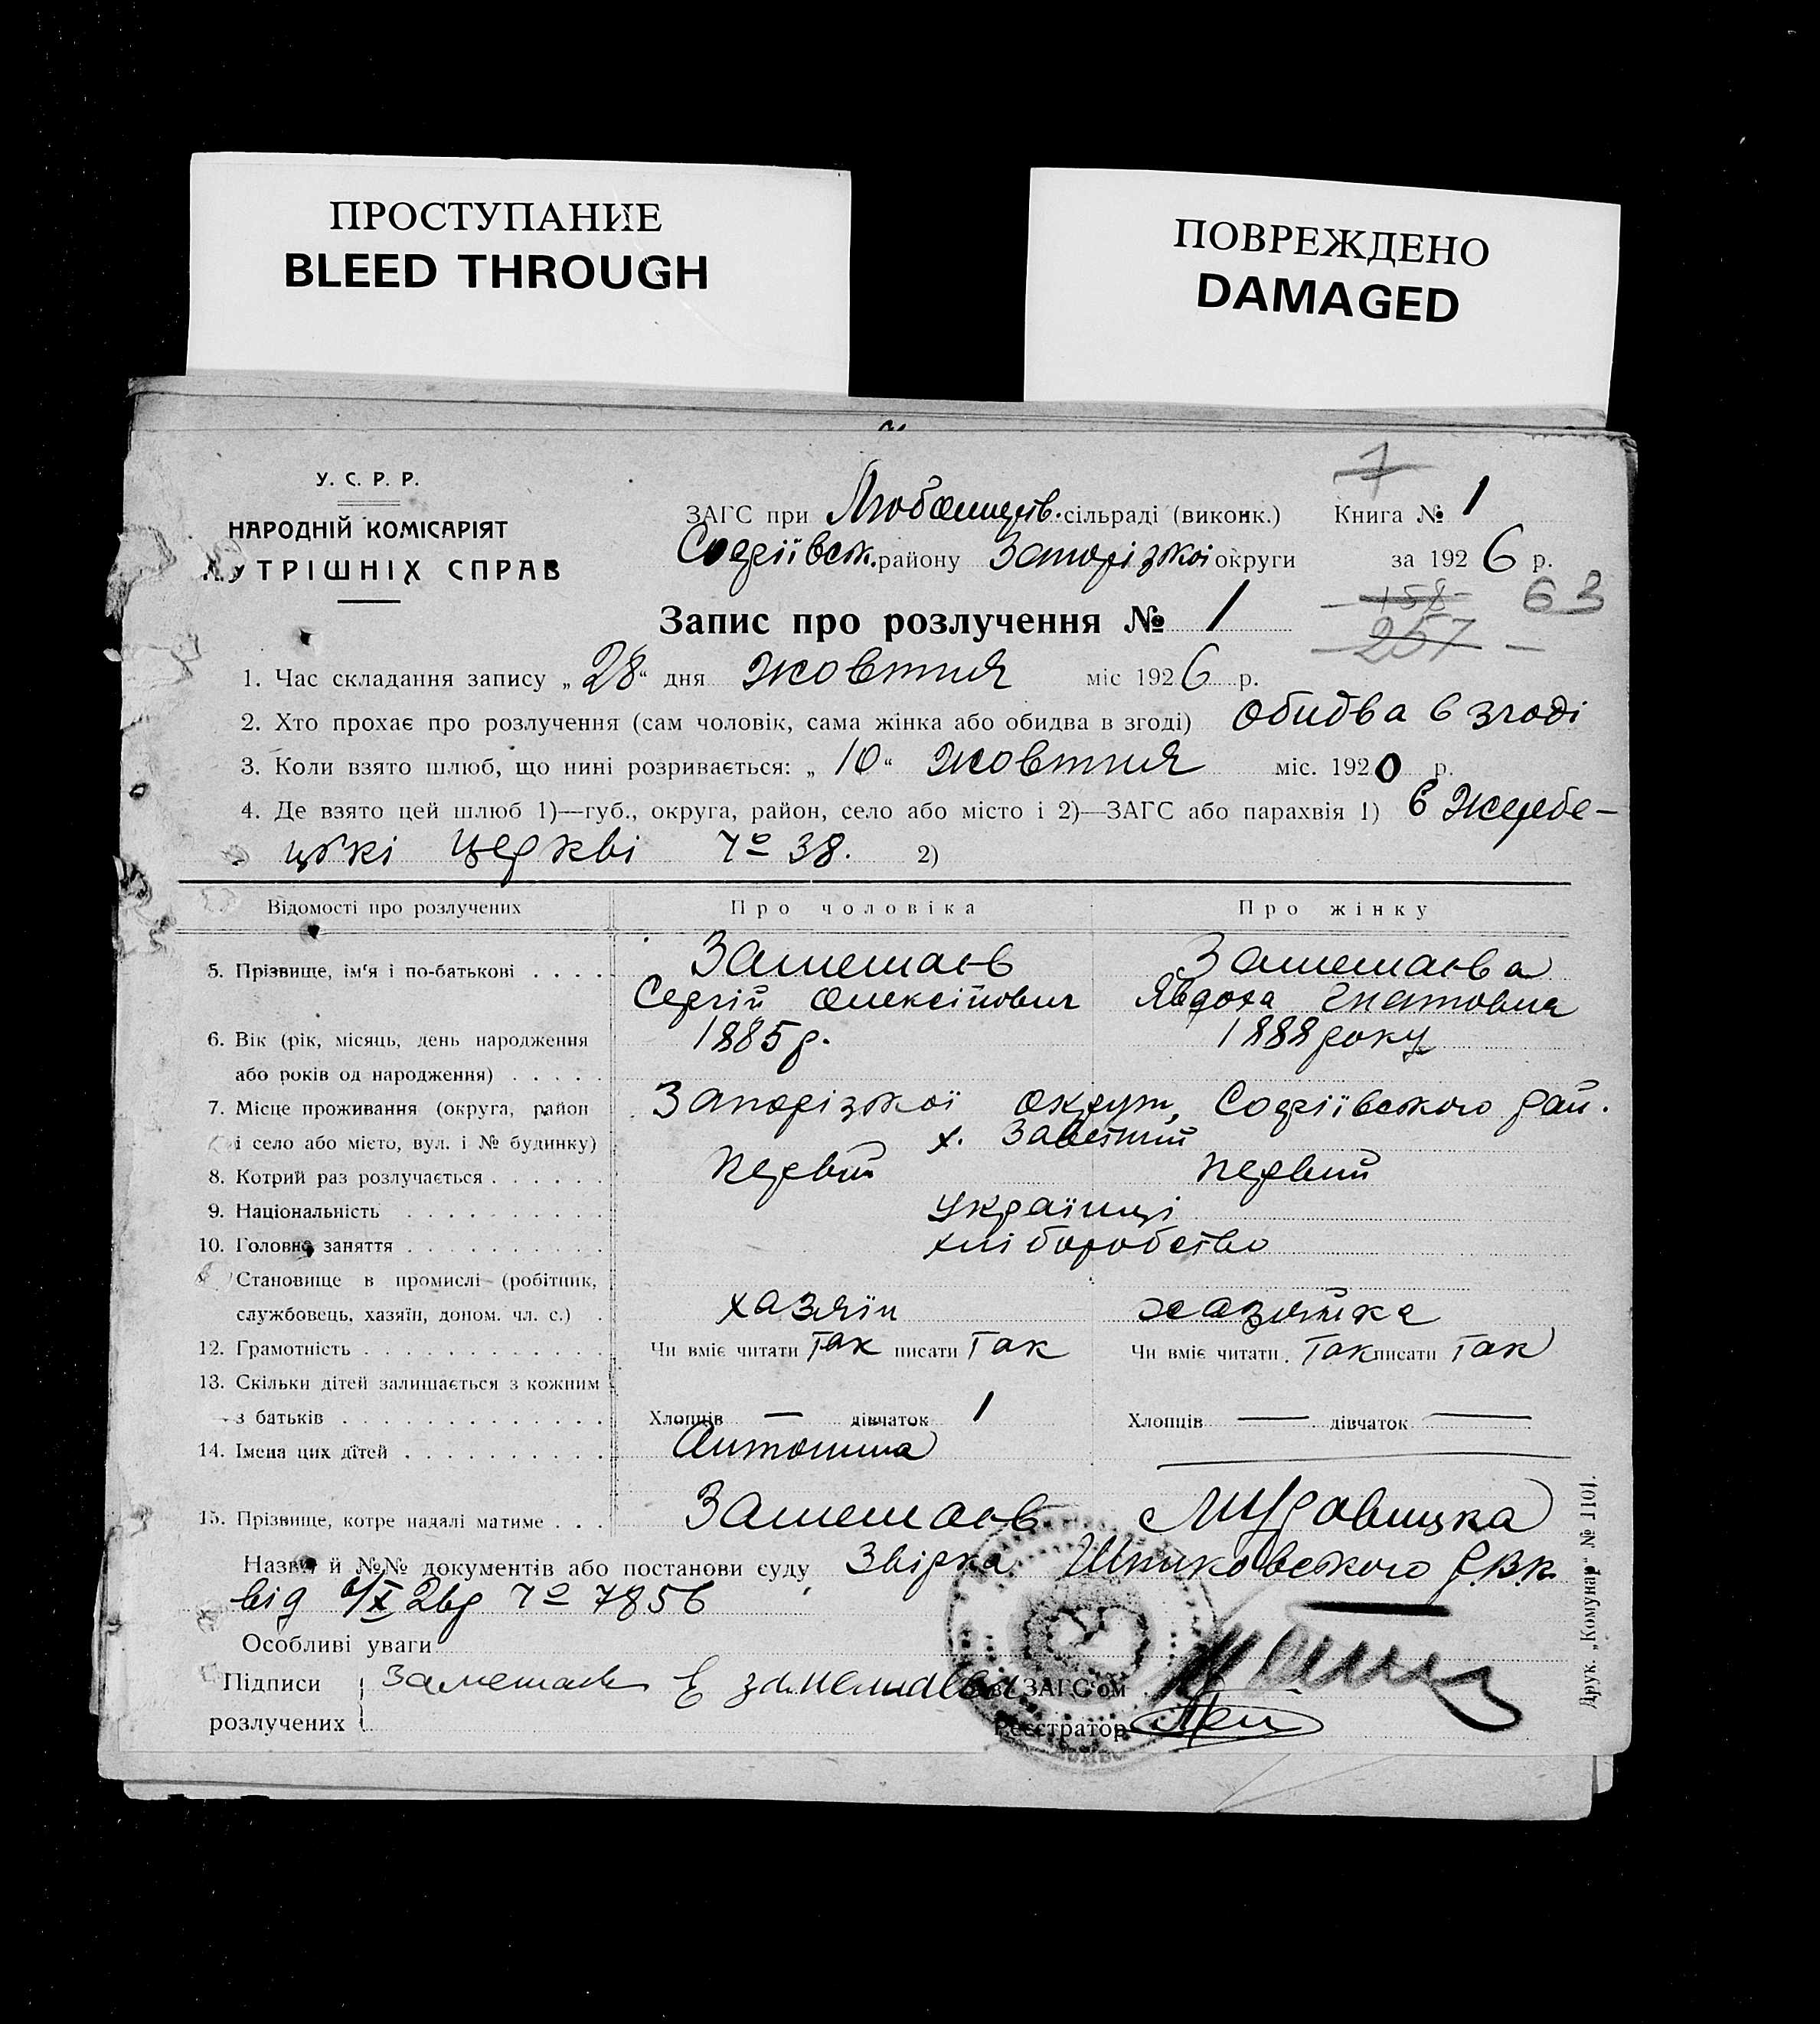 ПРОСТУПАНИЕ
BLEED THROUGH
ПОВРЕЖДЕНО
DAMAGED
У. С. Р. Р.
НАРОДНІЙ КОМІСАРІЯТ
НУТРІШНІХ СПРАВ
7
ЗАГС при сільраді (виконк.) Книга № 1
району Запорізкоі округи за 1926 р.
158 63
Запис про розлучення № 1
257
1. Час складання запису „28“ дня жовтня міс 1926 р.
2. Хто прохає про розлучення (сам чоловік, сама жінка або обидва в згоді) обидва в згоді
3. Коли взято шлюб, що нині розривається: „10“ жовтня міс. 1920 р.
4. Де взято цей шлюб 1)—губ., округа, район, село або місто і 2)—ЗАГС або парахвія 1) в Жеребе-
цькі церкві № 38. 2)
Відомості про розлучених Про чоловіка Про жінку
5. Прізвище, ім'я і по-батькові Замешаєв Замешаєва
Сергій Олексійович Явдоха Гнатовна
6. Вік (рік, місяць, день народження 1885 р. 1888 року
або років од народження)
7. Місце проживання (округа, район Запорізкої округи, Софіївського рай.
і село або місто, вул. і № будинку) х.
8. Котрий раз розлучається Первий первий
9. Національність Українці
10. Головне заняття хліборобство
Становище в промислі (робітник,
службовець, хазяїн, доном. чл. с.) хазяїн хазяйка
12. Грамотність Чи вміє читати Так писати Так Чи вміє читати Так писати Так
13. Скільки дітей залишається з кожним
з батьків Хлопців — дівчаток 1 Хлопців — дівчаток —
14. Імена цих дітей Антонина
15. Прізвище, котре надалі матиме Замешаєв Мудровицка
Назви й №№ документів або постанови суду Звірка р.в.к.
від 6/X 26р № 7856
Особливі уваги
Підписи Замешаев Е Замешаева Зав. ЗАГС'ом
розлучених Реєстратор
Друк. „Комунар“ № 1101.